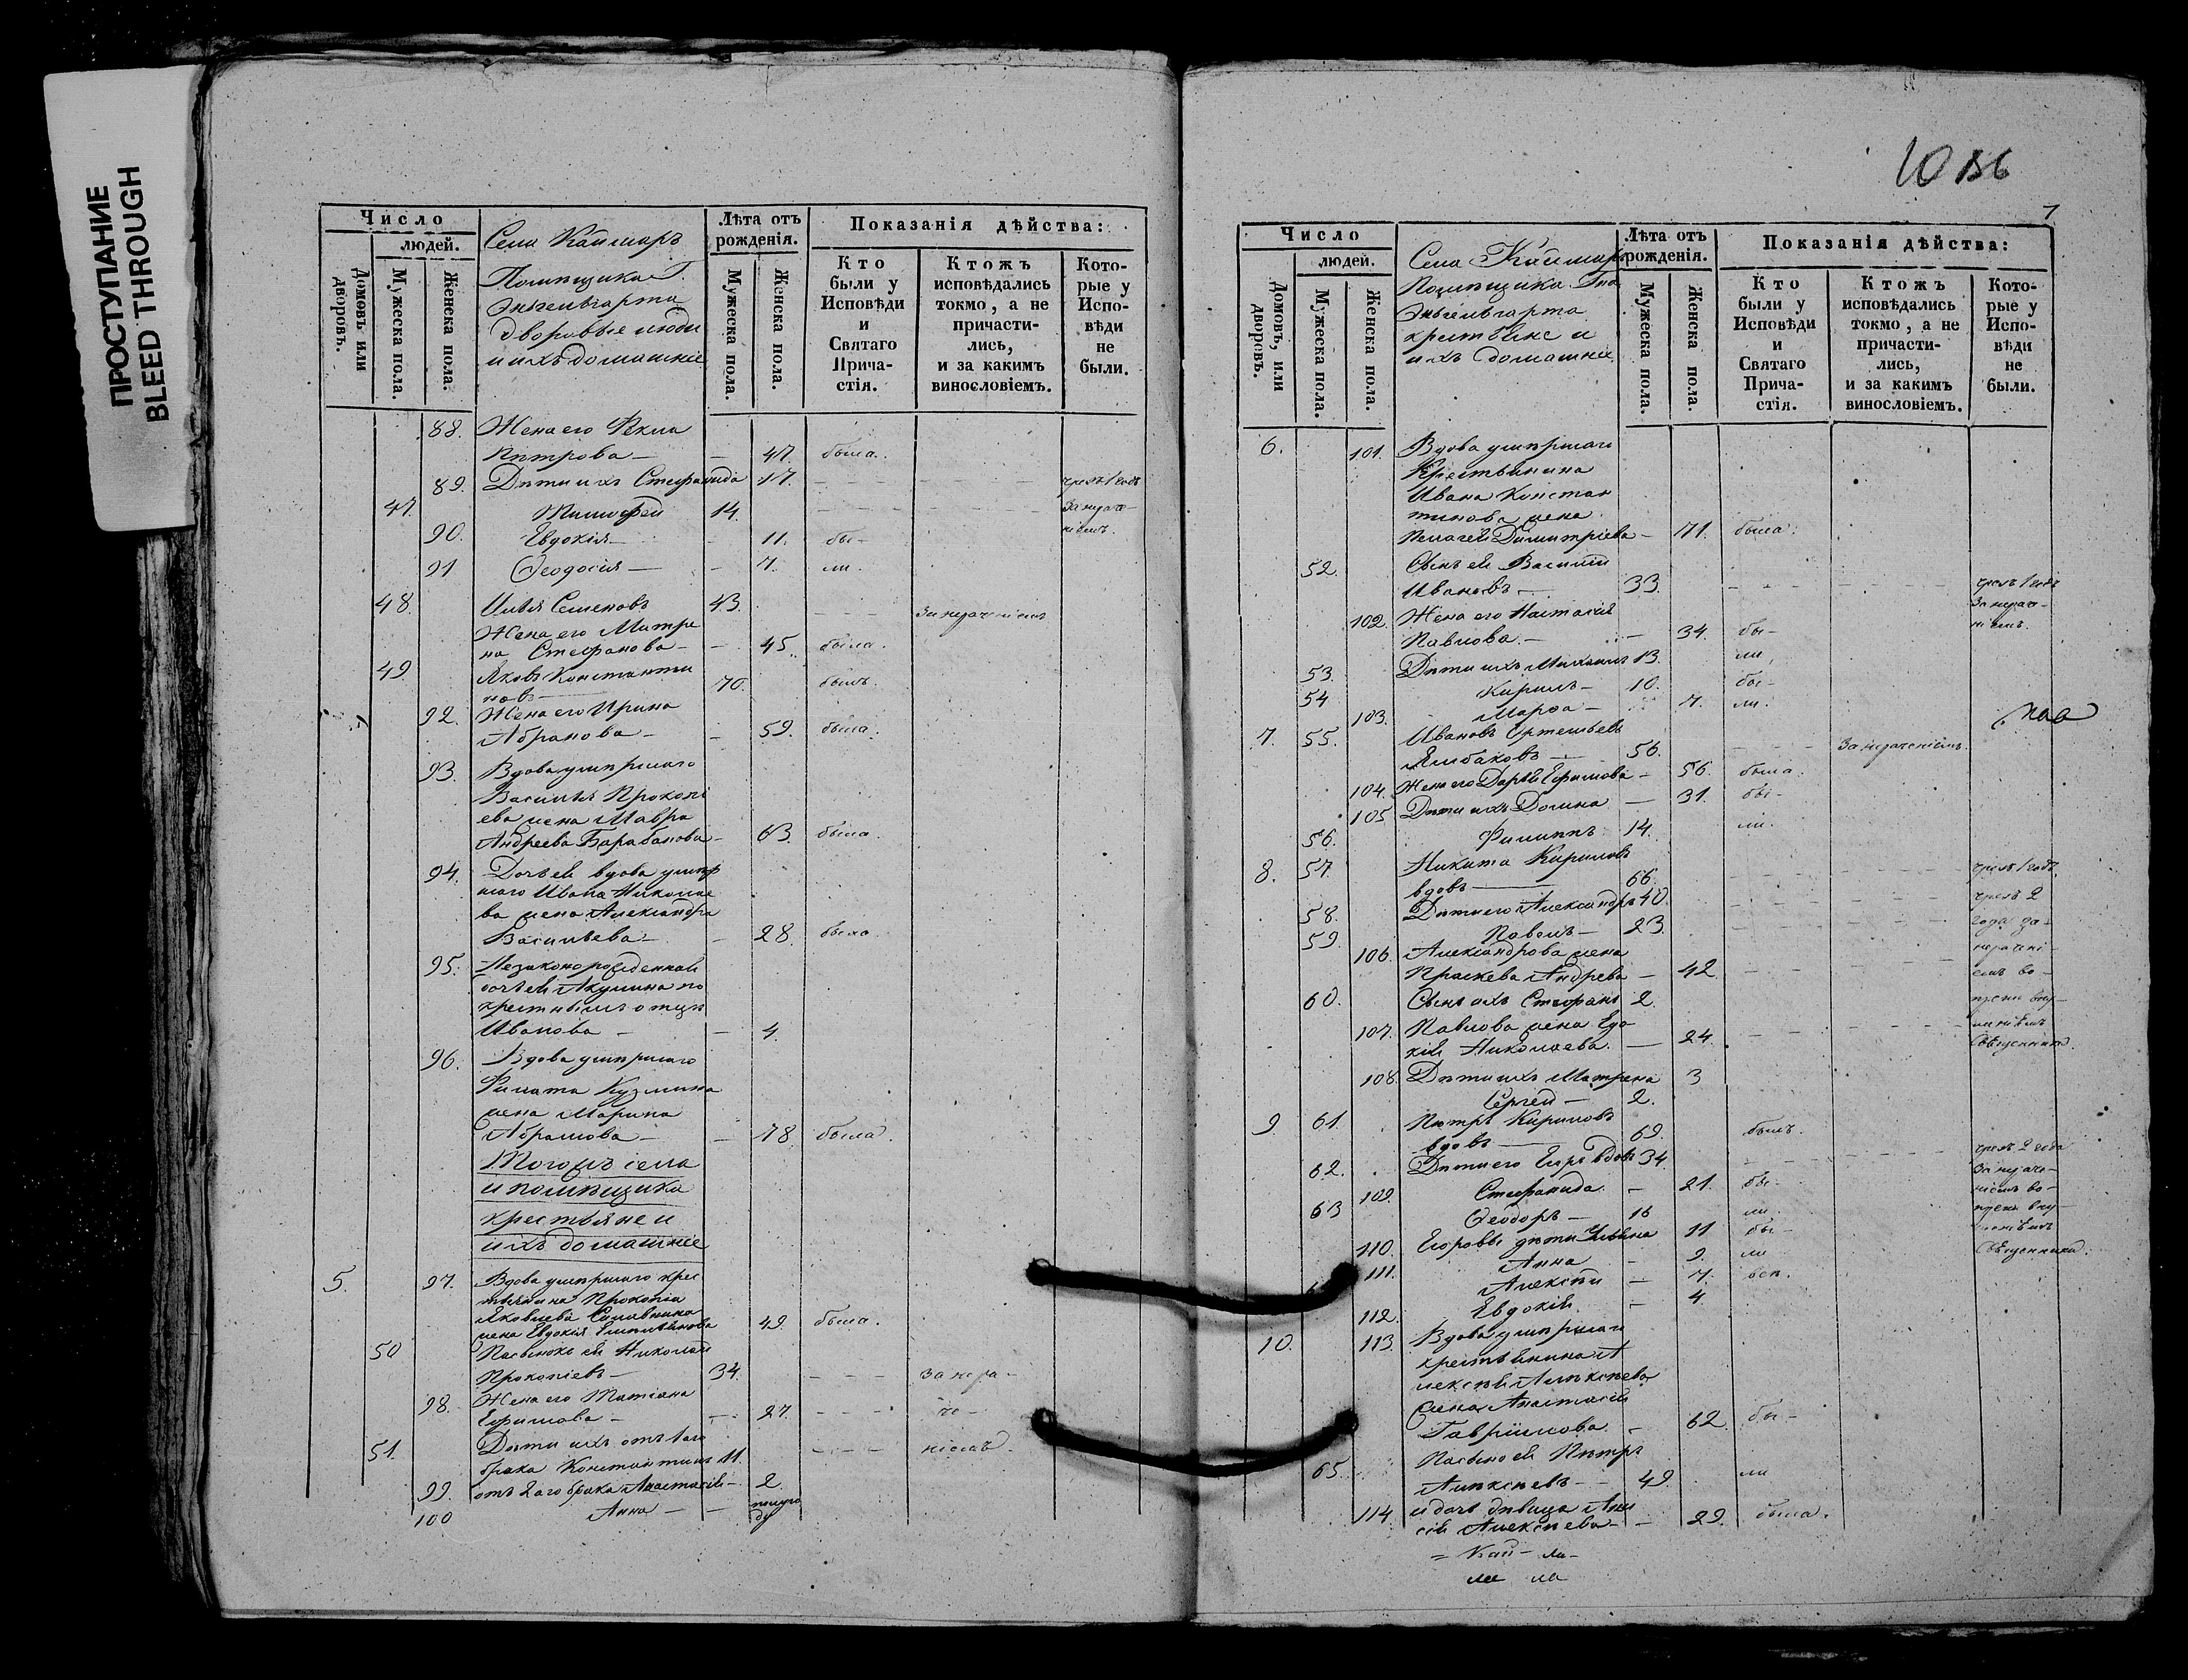 ПРОСТУПАНИЕ
BLEED THROUGH
Число
людей.
Домовъ или дворовъ.
Мужеска пола.
Женска пола.
Села Каймаръ
Помѣщика Г.
Энгельгарта
дворовые люди
и ихъ домашніе
Лѣта отъ рожденія.
Мужеска пола.
Женска пола.
Показанія дѣйства:
Кто были у Исповѣди и Святаго Прича-стія.
Ктожъ исповѣдались токмо, а не причасти-лись, и за какимъ винословіемъ.
Кото-рые у Испо-вѣди не были.
88. Жена его Фекла
Петрова — 47. была.
89. Дѣти ихъ Стефанида 17.
47. Тимофей 14.
90. Евдокія — 11. бы-
91 Феодосія — 7. ли.
48. Илья Семеновъ 43. за нераченіемъ
Жена его Матре
на Стефанова — 45. была.
49. Яковъ Константи
новъ — 70. былъ.
92. Жена его Ирина
Абрамова — 59. была.
93. Вдова умершаго
Василья Прокопі
ева жена Мавра
Андреева Барабанова — 63. была.
94. Дочь ея вдова умер
шаго Ивана Николае
ва жена Александра
Васильева — 28. была
95. Незаконорожденная
дочь ея Акулина по
крестному отцу
Иванова — 4.
96. Вдова умершаго
Филата Кузмина
жена Марина
Абрамова — 78. была.
Тогожъ села
и помѣщика
крестьяне и
ихъ домашніе
5. 97. Вдова умершаго крес
тьянина Прокопія
Яковлева
жена Евдокія 49. была.
50 Пасынокъ ея Николай
Прокопіевъ — 34. за нера-
98. Жена его Татіана
Ефимова — 27. че-
51. Дѣти ихъ отъ 1го
брака Константинъ 11. ніемъ.
99. отъ 2аго брака Анастасія — 2.
100 Анна — полуго
ду
10 136
7
Число
людей.
Домовъ, или дворовъ.
Мужеска пола.
Женска пола.
Села Каймаръ
Помѣщика Гна
Энгельгарта
крестьяне и
ихъ домашніе
Лѣта отъ рожденія.
Мужеска пола.
Женска пола.
Показанія дѣйства:
Кто были у Исповѣди и Святаго Прича-стія.
Ктожъ исповѣдались токмо, а не причасти-лись, и за какимъ винословіемъ.
Кото-рые у Испо-вѣди не были.
6. 101. Вдова умершаго
Крестьянина
Ивана Констан
тинова жена
Пелагея Димитріева — 71. была.
52. Сынъ ея Василій
Ивановъ — 33.
102. Жена его Настасія
Павлова — 34. бы-
53. Дѣти ихъ Михаилъ 13. ли,
54 Кирилъ — 10. бы-
103. Марфа — 7. ли.
7. 55. Ивановъ
56. за нераченіемъ.
104. Жена его Дарья Ефимова — 56. была.
105 Дѣти ихъ Домна — 31. бы-
56. Филиппъ 14. ли.
8. 57. Никита Кириловъ
вдовъ — 66.
58. Дѣти его Александръ 40.
59. Павелъ — 23.
106. Александрова жена
Праскева Андрева — 42
60. Сынъ ихъ Стефанъ 2.
107. Павлова жена Евдо
кія Николаева. — 24.
108. Дѣти ихъ Матрена 3
Сергей — 2.
9. 61. Петръ Кириловъ
вдовъ — 69. былъ.
62. Дѣти его Егоръ вдовъ 34
109. Стефанида — 21. бы-
63 Феодоръ — 16 ли.
110. Егоровы дѣти Ульяна 11 бы-
111. Анна — 9. ли
Алексѣй — 7. всѣ.
112. Евдокія — 4.
10. 113. Вдова умершаго
крестьянина А
лексѣя Алексѣева
жена Анастасія
Гавріилова — 62. бы-
65. Пасынокъ ея Петръ
Алексѣевъ — 49. ли
114. и дочь дѣвица Ани
сія Алексѣева — 29. была.